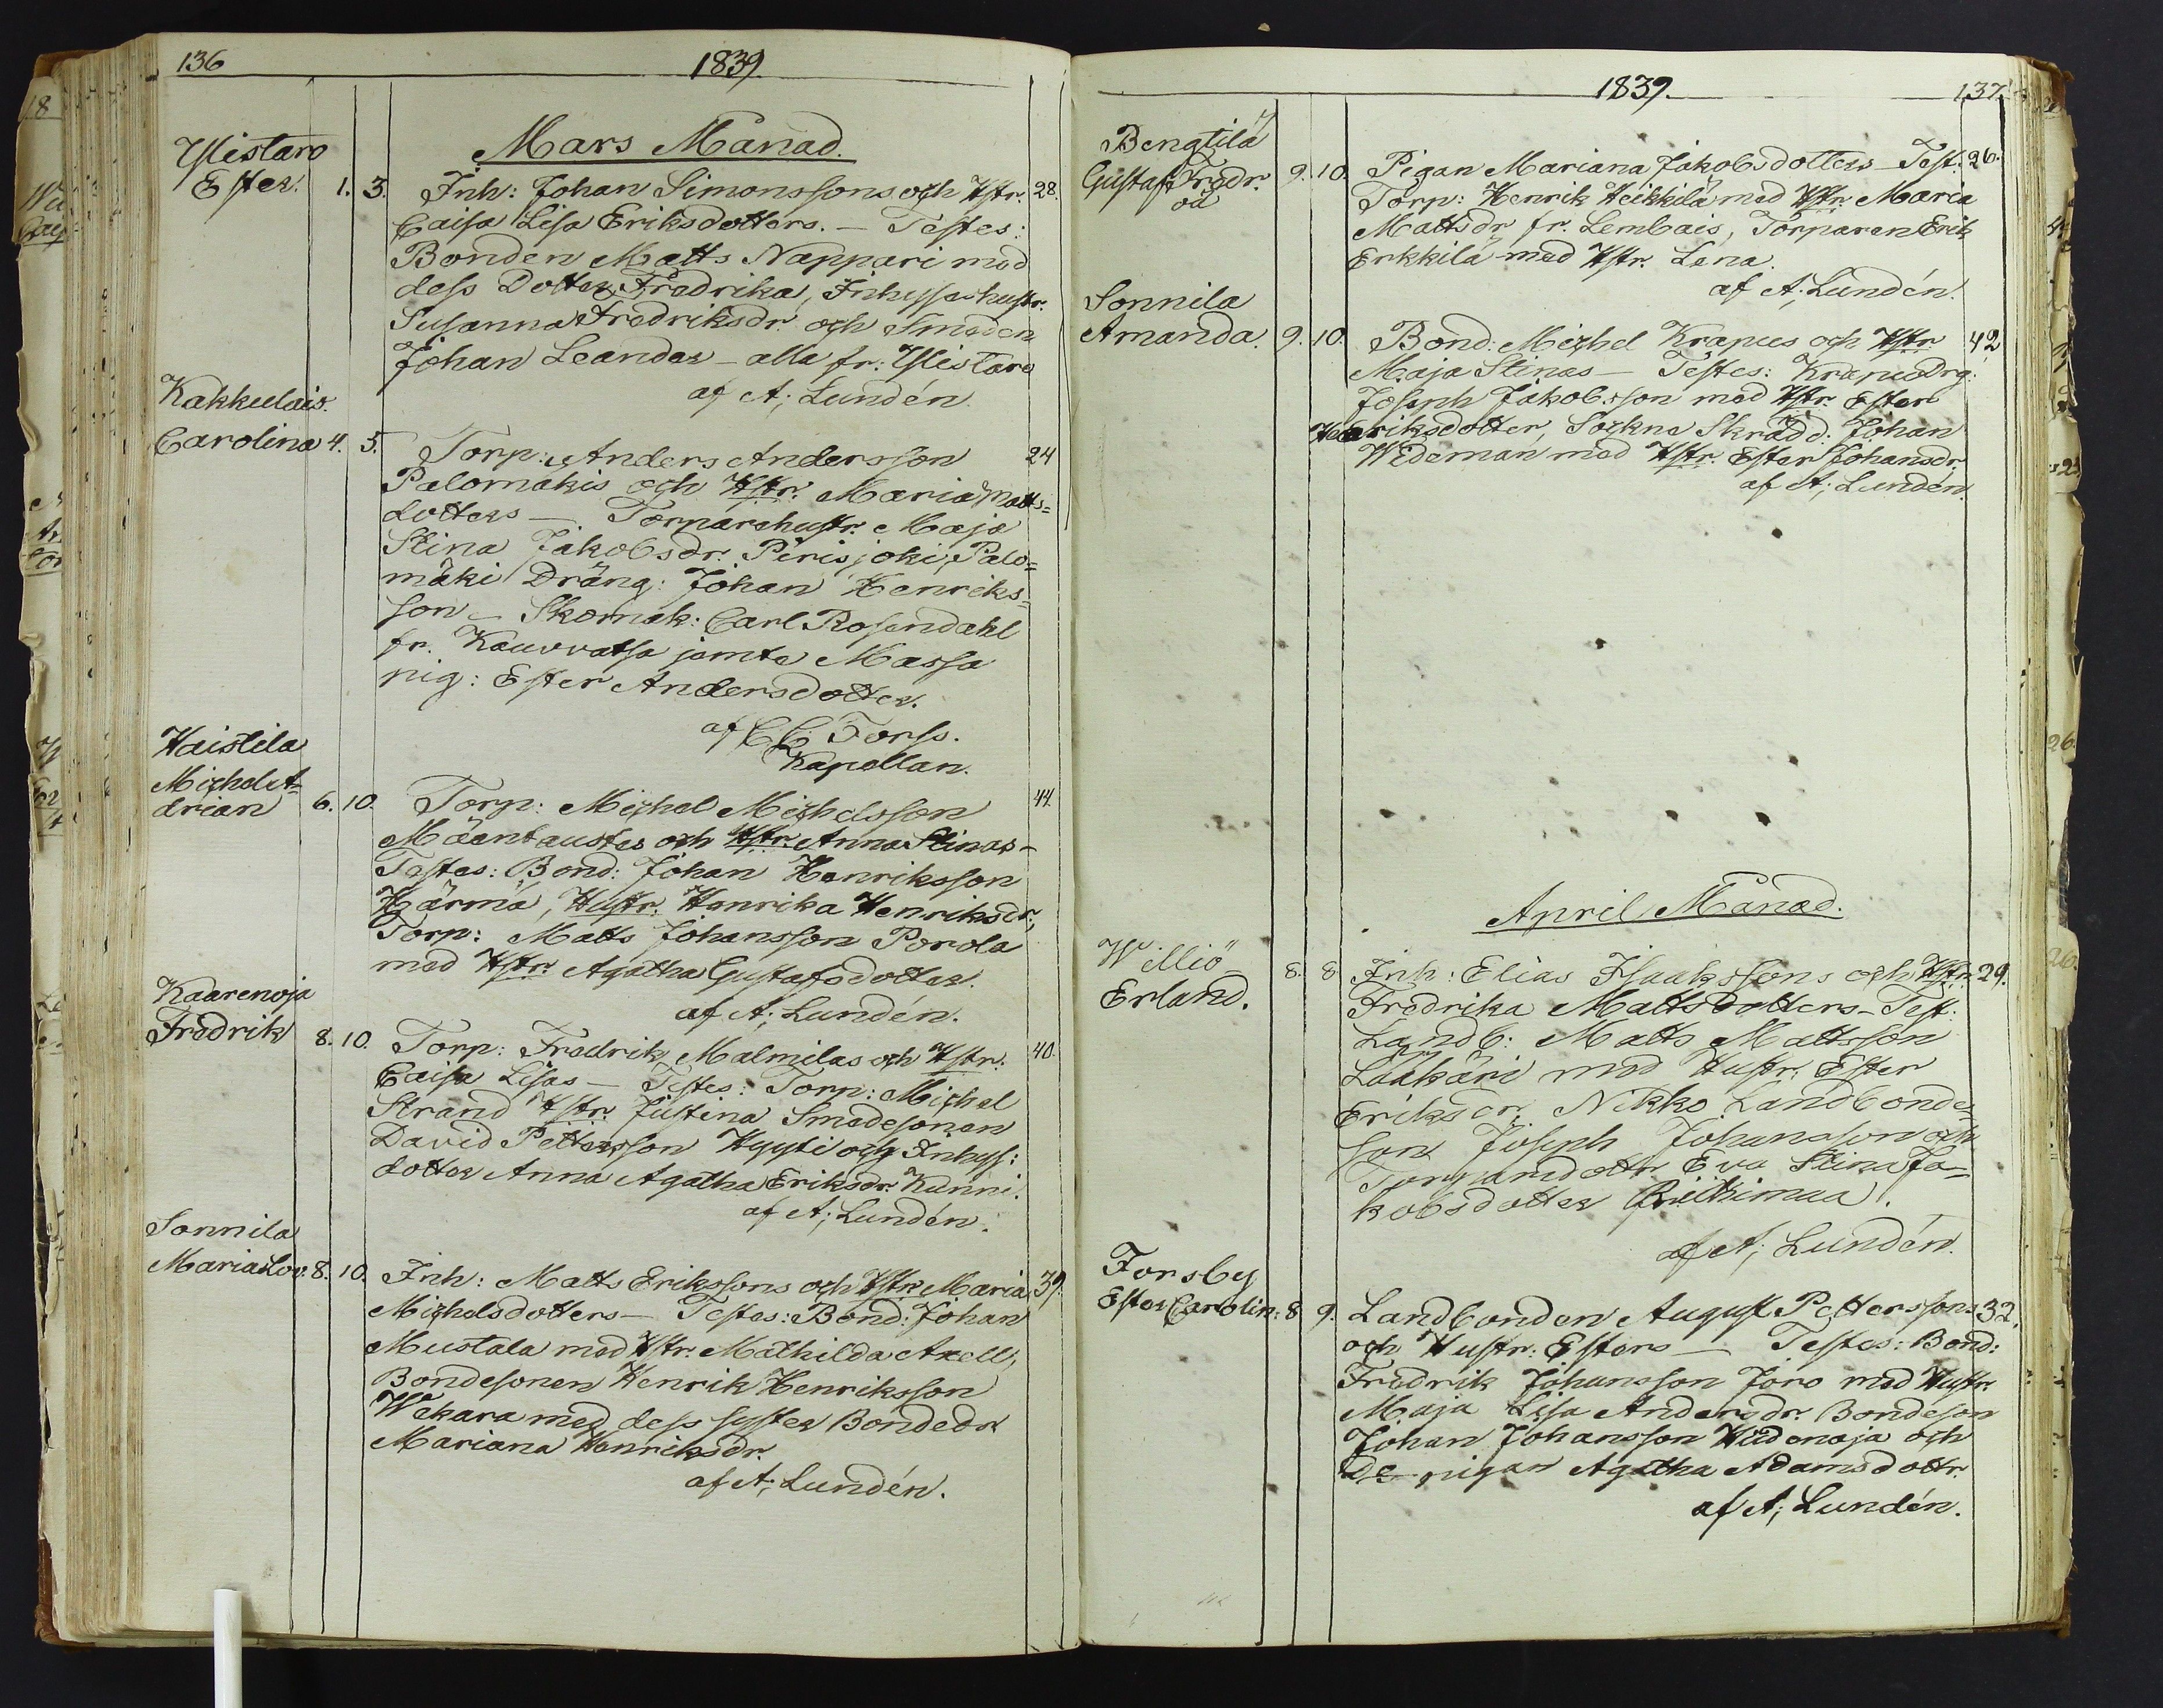 136
1839.
Mars Månad.
Ylistaro
Ester. 1. 3. Inh: Johan Simonssons och Hstr. 28.
Caisa Lisa Eriksdotters. — Testes:
Bonden Matts Nappari med
dess Dotter Fredrika, Inhyses hustr.
Susanna Fredriksdr. och Smeden
Johan Leander — alla fr: Ylistaro
af A; Lundén.
Kakkulais.
Carolina 4. 5. Torp: Anders Andersson 24
Palomäkis och Hstr. Maria Matts=
dotters — Torparehustr. Maja
Stina Jakobsdr. Pirisjoki, Palo=
mäki Dräng: Johan Henriks=
son — Skomak: Carl Rosendahl
fr. Kauvvatsa jemte Massa
pig: Ester Andersdotter.
af C C Forss.
Kapellan.
Haistila
Michel A=
drian 6. 10. Torp: Michel Michelsson 44.
Mäentaustas och Hstr. Anna Stinas —
Testes: Bond: Johan Henriksson
Härmä, Hustr. Henrika Henriksdr.,
Torp: Matts Johansson Porola
med Hstr. Agatha Gustafsdotter.
af A; Lundén.
Kaarenoja
Fredrik 8. 10. Torp: Fredrik Malmilas och Hstr. 40.
Caisa Lisas — Testes: Torp: Michel
Strand Hstr. Justina Smedesonen
David Pettersson Hyyti och Inhys:
dotter Anna Agatha Eriksdr. Kunni.
af A; Lundén.
Sonnila
Maria Lov: 8. 10. Inh: Matts Erikssons och Hstr. Maria 39.
Michelsdotters — Testes: Bond: Johan
Mustala med Hstr. Mathilda Axell,
Bondesonen Henrik Henriksson
Wekara med dess syster Bondedr
Mariana Henriksdr.
af A; Lundén.
1839.
137.
Bengtilä
Gustaf Fredr. 9. 10. Pigan Mariana Jakobsdotters — Test. 26.
oä
Torp: Henrik Heikkilä med Hstr. Maria
Mattsdr fr. Lembais, Torparen Erik
Erkkilä med Hstr. Lena.
af A; Lundén.
Sonnila
Amanda. 9. 10. Bond: Michel Krapus och Hstr 42
Maja Stinas — Testes: Krapu Drg:
Joseph Jakobsson med Hstr. Ester
Henriksdotter, Sockne Skrädd: Johan
Wideman med Hstr. Ester Johansdr.
af A; Lundén.
April Månad.
Williö
Erland. 8. 8 Inh: Elias Isaakssons och Hstr. 29.
Fredrika Mattsdotters — Test:
Landb: Matts Mattsson
Lääkäri med Hustr. Ester
Eriksdr. Nikko Landbonde
son Joseph Johansson och
Torparedottr Eva Stina Ja=
kobsdotter Riithimaa.
af A; Lundén.
Forsby
Ester Carolin: 8 9. Landbonden August Petterssons 32.
och Hustr: Esters — Testes: Bond:
Fredrik Johansson Joro med Hustr.
Maja Lisa Andersdr. Bondeson
Johan Johansson Hiidenoja och
De pigan Agatha Adamsdottr.
af A; Lundén.